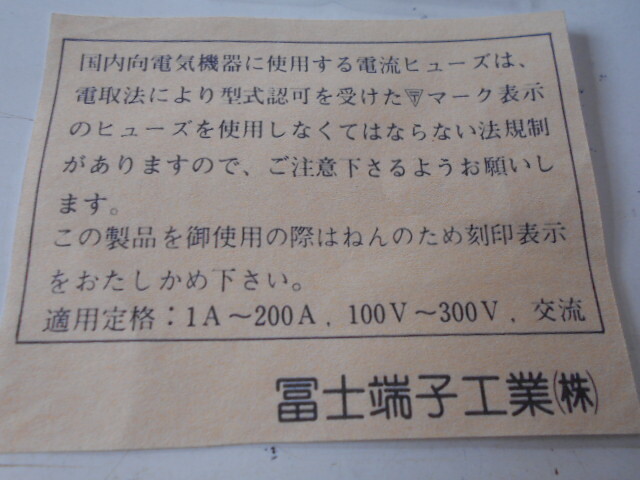 国内向電気機器に使用する電流ヒューズは、
電取法により型式認可を受けた▽マーク表示
のヒューズを使用しなくてはならない法規制
がありますので、ご注意下さるようお願いし
ます。
この製品を御使用の際はねんのため刻印表示
をおたしかめ下さい。
適用定格：1A～200A．100V～300V．交流
冨士端子工業㈱